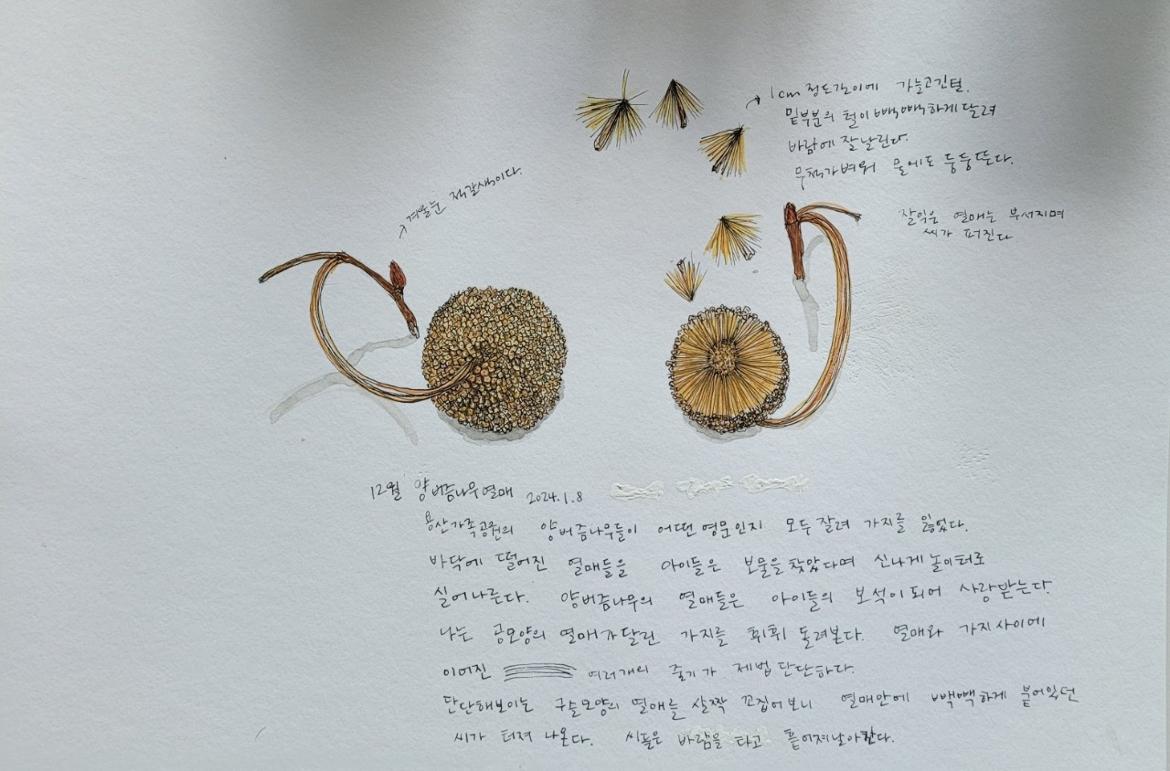 1cm 정도길이에 가늘고긴털.
밑부분의 털이 빽빽하게달려
바람에 잘날린다.
무척가벼워 물에도 둥둥뜬다.
잘익은 열매는 부서지며
씨가 퍼진다
겨울눈 적갈색이다.
12월 양버즘나무열매 2024.1.8
용산가족공원의 양버즘나무들이 어떤영문인지 모두잘려 가지를 잃었다.
바닥에 떨어진 열매들을 아이들은 보물을찾았다며 신나게놀이터로
실어나른다. 양버즘나무의 열매들은 아이들의 보석이되어 사랑받는다.
나는 공모양의 열매가달린 가지를 휘휘 돌려본다. 열매와 가지사이에
이어진 여러개의 줄기가 제법단단하다.
단단해보이는 구슬모양의 열매를 살짝 꼬집어보니 열매안에 빽빽하게 붙어있던
씨가 터져 나온다. 씨들은 바람을 타고 흩어져날아간다.